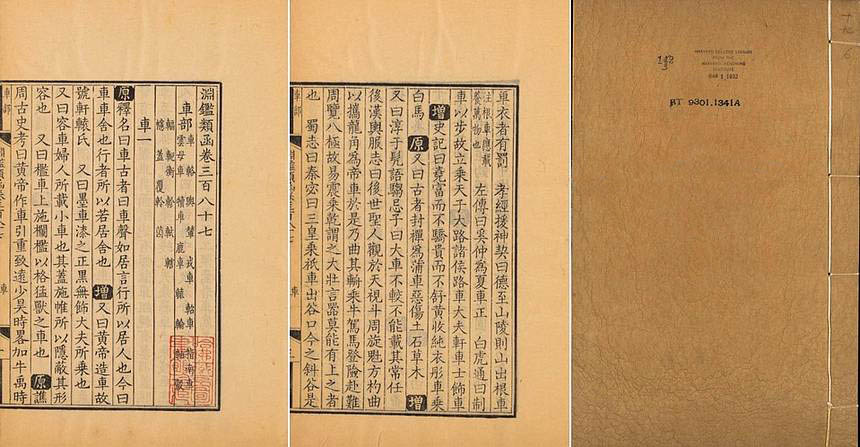 淵鑑類函卷三百八十七
車部 車 輅 輿 輦 戎車 軺車 指南車
雲母車 犢車 鹿車 轅 輪 軸 轂
輻 軛 衡 軫 軾 轄
幰 蓋 覆軨 茵
車一
原釋名曰車古者曰車聲如居言行所以居人也今曰
車車舍也行者所以若居舍也 增又曰黃帝造車故
號軒轅氏 又曰墨車漆之正黑無飾大夫所乘也
又曰容車婦人所載小車也其蓋施帷所以隱蔽其形
容也 又曰檻車上施欄檻以格猛獸之車也 原譙
周古史考曰黃帝作車引重致遠少昊時畧加牛禹時
車部
車衣者有罰 孝經援神契曰德至山陵則山出根車
注根車應載養萬物也 左傳曰奚仲為夏車正 白虎通曰制
車以步故立乘天子大路諸侯路車大夫軒車士飾車
增史記曰堯富而不驕貴而不舒黃收純衣彤車乘
白馬 原又曰古者封禪為蒲車惡傷土石草木 增
又曰淳于髡語騶忌子曰大車不較不能載其常任
後漢輿服志曰後世聖人觀於天視斗周旋魁方杓曲
以攜龍角為帝車於是乃曲其輈乘牛駕馬登險赴難
周覽八極故易震乘乾謂之大壯言器莫能有上之者
也 蜀志曰秦宓曰三皇乘祇車出谷口今之斜谷是
車部
142
BT 9301.1341A